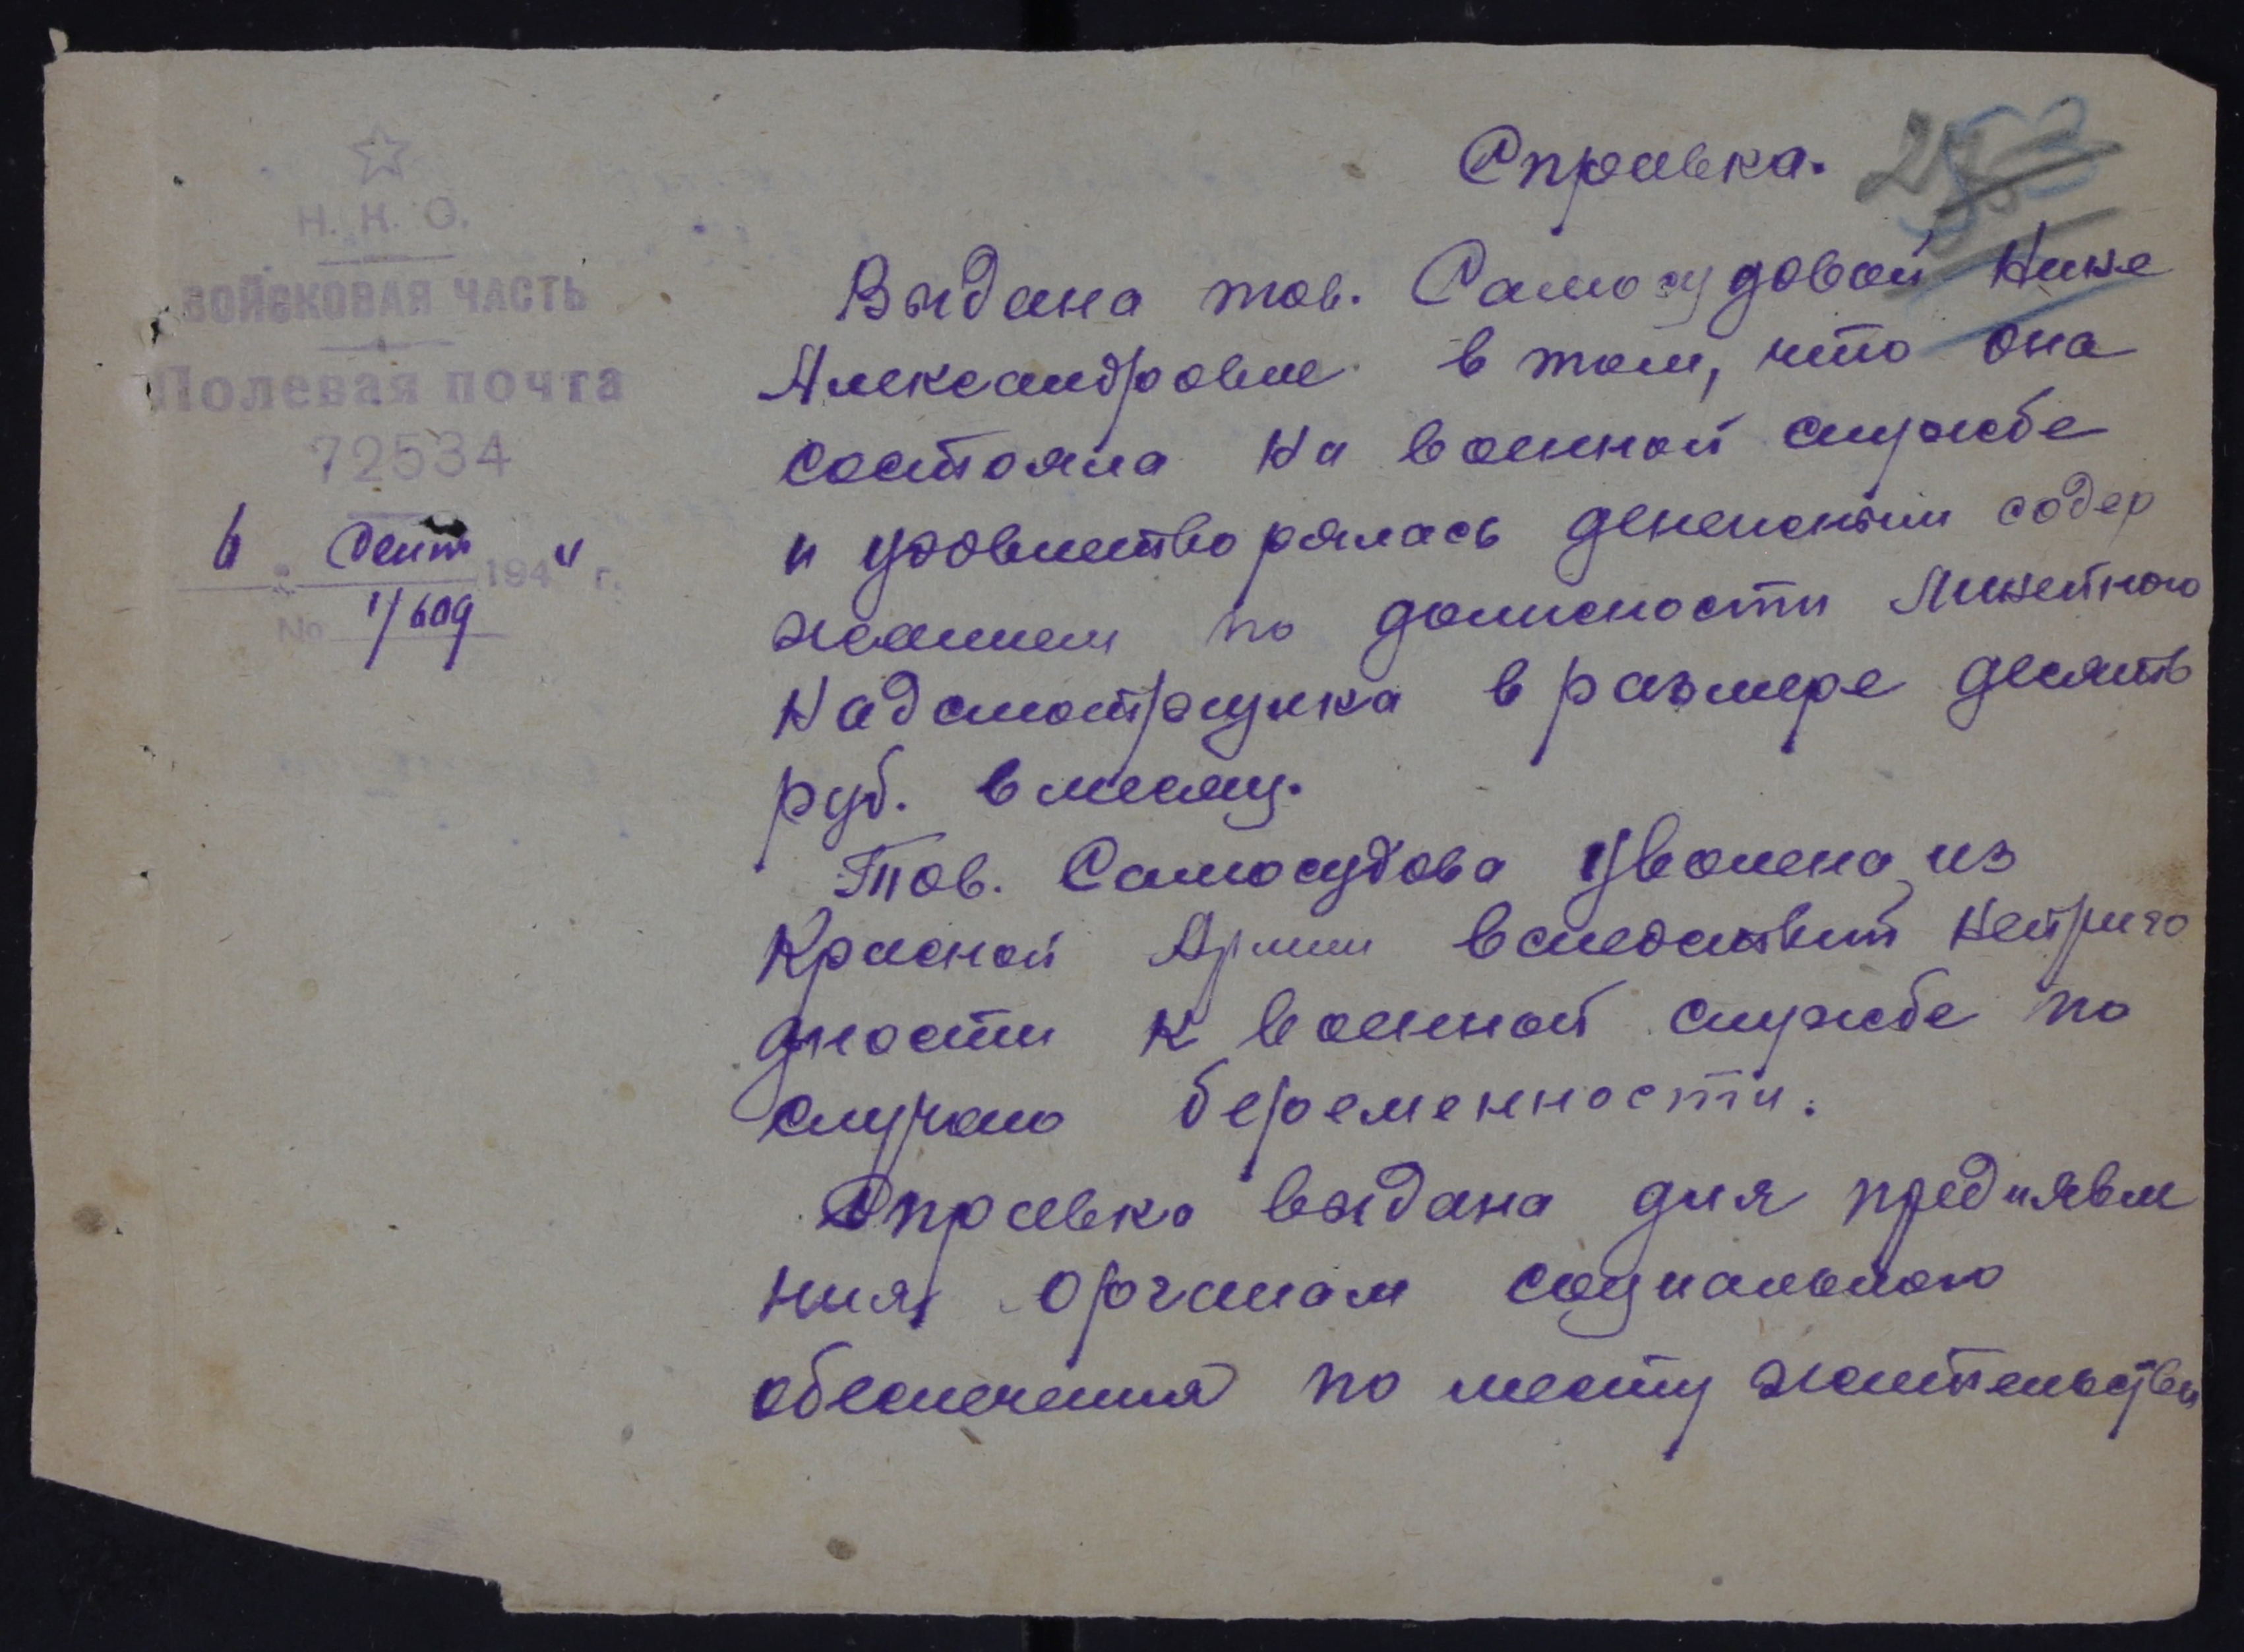 Справка.
Н. К. О.
ВОЙСКОВАЯ ЧАСТЬ
Полевая почта
72534
6 Сент 1944 г.
No 1/609
Выдана тов. Самосудовой Нине
Александровне в том, что она
состояла на военной службе
и удовлетворялась денежным содер
жанием по должности Линейного
надсмотрщика в размере десять
руб. в месяц.
Тов. Самосудова уволена из
Красной Армии вследствии неприго
дности к военной службе по
случаю беременности.
Справка выдана для предиявле
ния органам социального
обеспечения по месту жительства